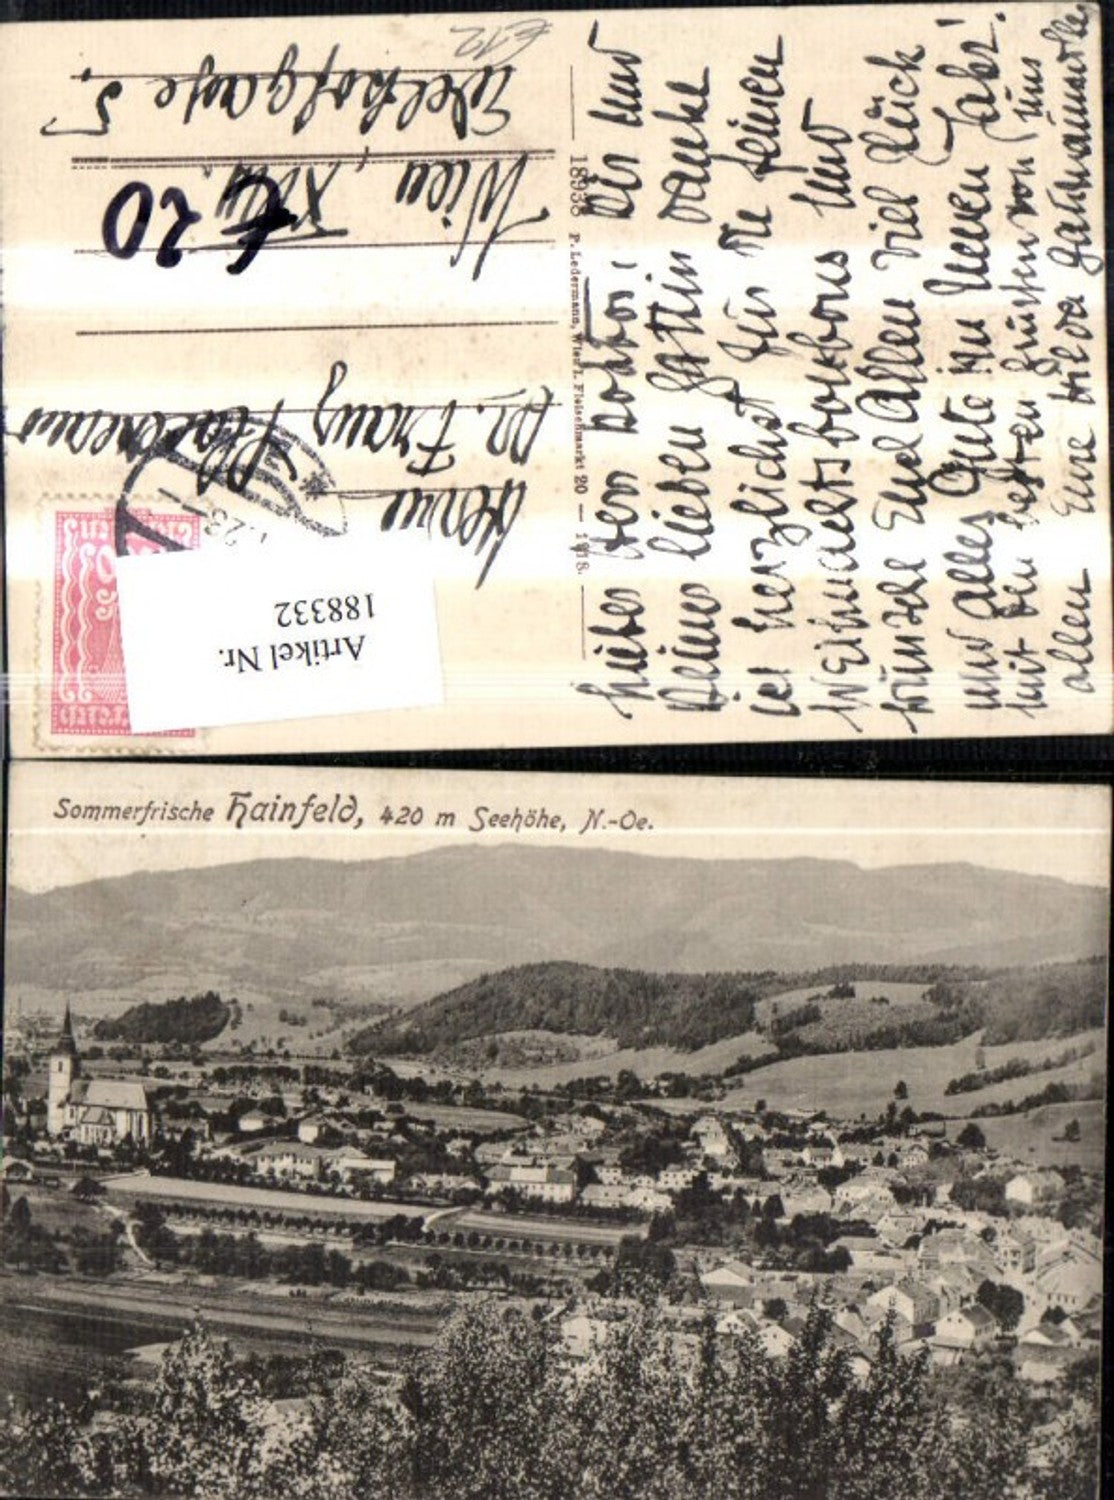 Lieber Herr Doktor! Dir und
Deiner lieben Gattin danke
ich herzlichst für die feinen
Weihnachtsbonbons und
wünsche Euch Allen viel Glück
und alles Gute im Neuen Jahr!
mit den besten Grüßen von uns
allen Eure
18938 P. Ledermann, Wien I. Fleischmarkt 20 — 1918.
Herrn
Dr. Franz
Wien, XVIII.
5.
€ 20
€12
Artikel Nr.
188332
Sommerfrische Hainfeld, 420 m Seehöhe, N.-Oe.